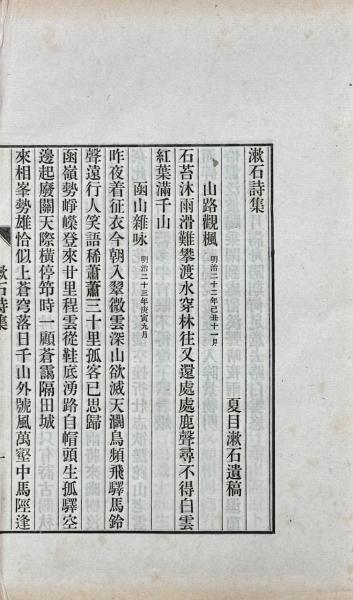 漱石詩集
夏目漱石遺稿
山路觀楓 明治二十二年己丑十一月
石苔沐雨滑難攀渡水穿林往又還處處鹿聲尋不得白雲
紅葉滿千山
函山雜咏 明治二十三年庚寅九月
昨夜着征衣今朝入翠微雲深山欲滅天濶鳥頻飛驛馬鈴
聲遠行人笑語稀蕭蕭三十里孤客已思歸
函嶺勢崢嶸登來廿里程雲從鞋底湧路自帽頭生孤驛空
邊起廢關天際橫停筇時一顧蒼靄隔田城
來相峯勢雄恰似上蒼穹落日千山外號風萬壑中馬陘逢
漱石詩集
一